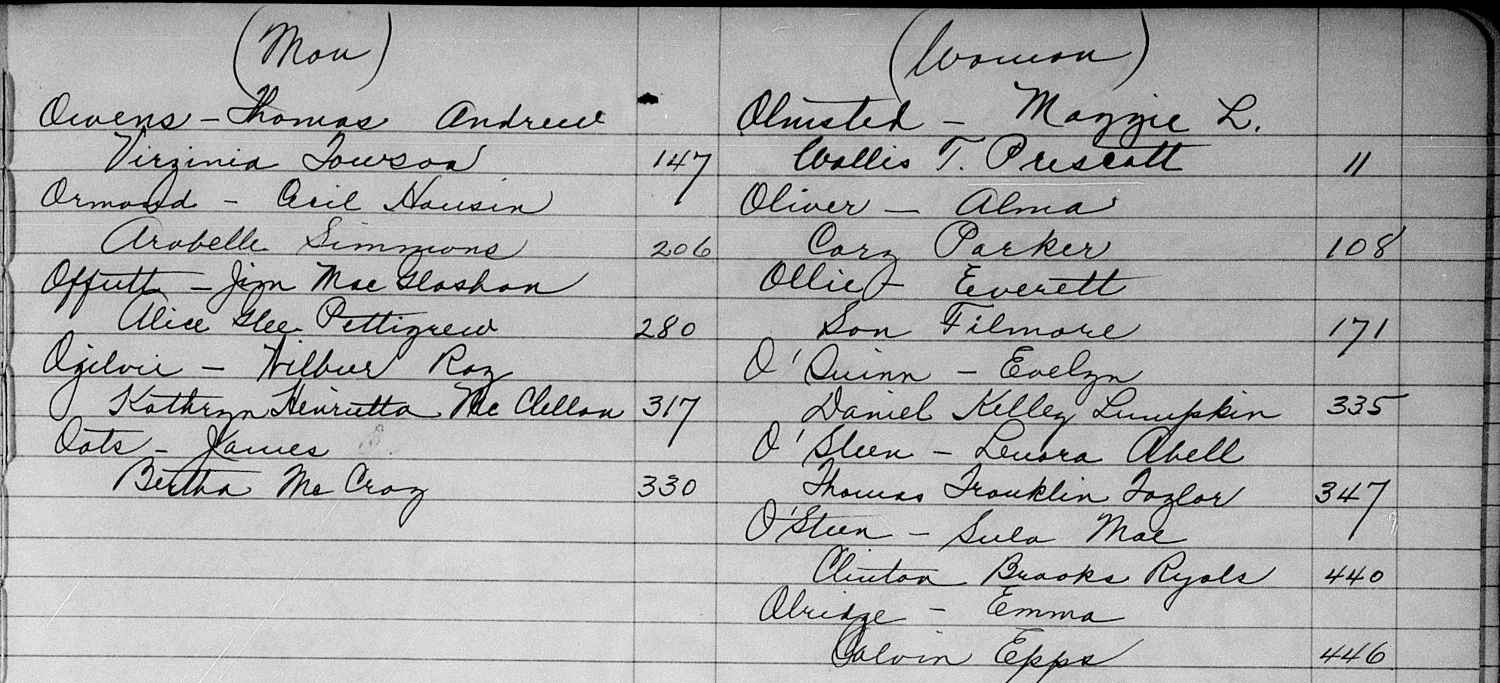 (Men)
Owens - Thomas Andrew
Virginia Towson 147
Ormond - Cecil Housin
Arabelle Simmons 206
Offutt - Jim MacGlashan
Alice Glee Pettigrew 280
Ogilvie - Wilbur Roy
Kathryn Henrietta McClellan 317
Oats - James
Bertha McCray 330
(Women)
Olmsted - Maggie L.
Wallis T. Prescott 11
Oliver - Alma
Cary Parker 108
Ollie - Everett
Son Filmore 171
O'Quinn - Evelyn
Daniel Kelley Lumpkin 335
O'Steen - Lenora Abell
Thomas Franklin Taylor 347
O'Steen - Sula Mae
Clinton Brooks Ryals 440
Olridge - Emma
Calvin Epps 446